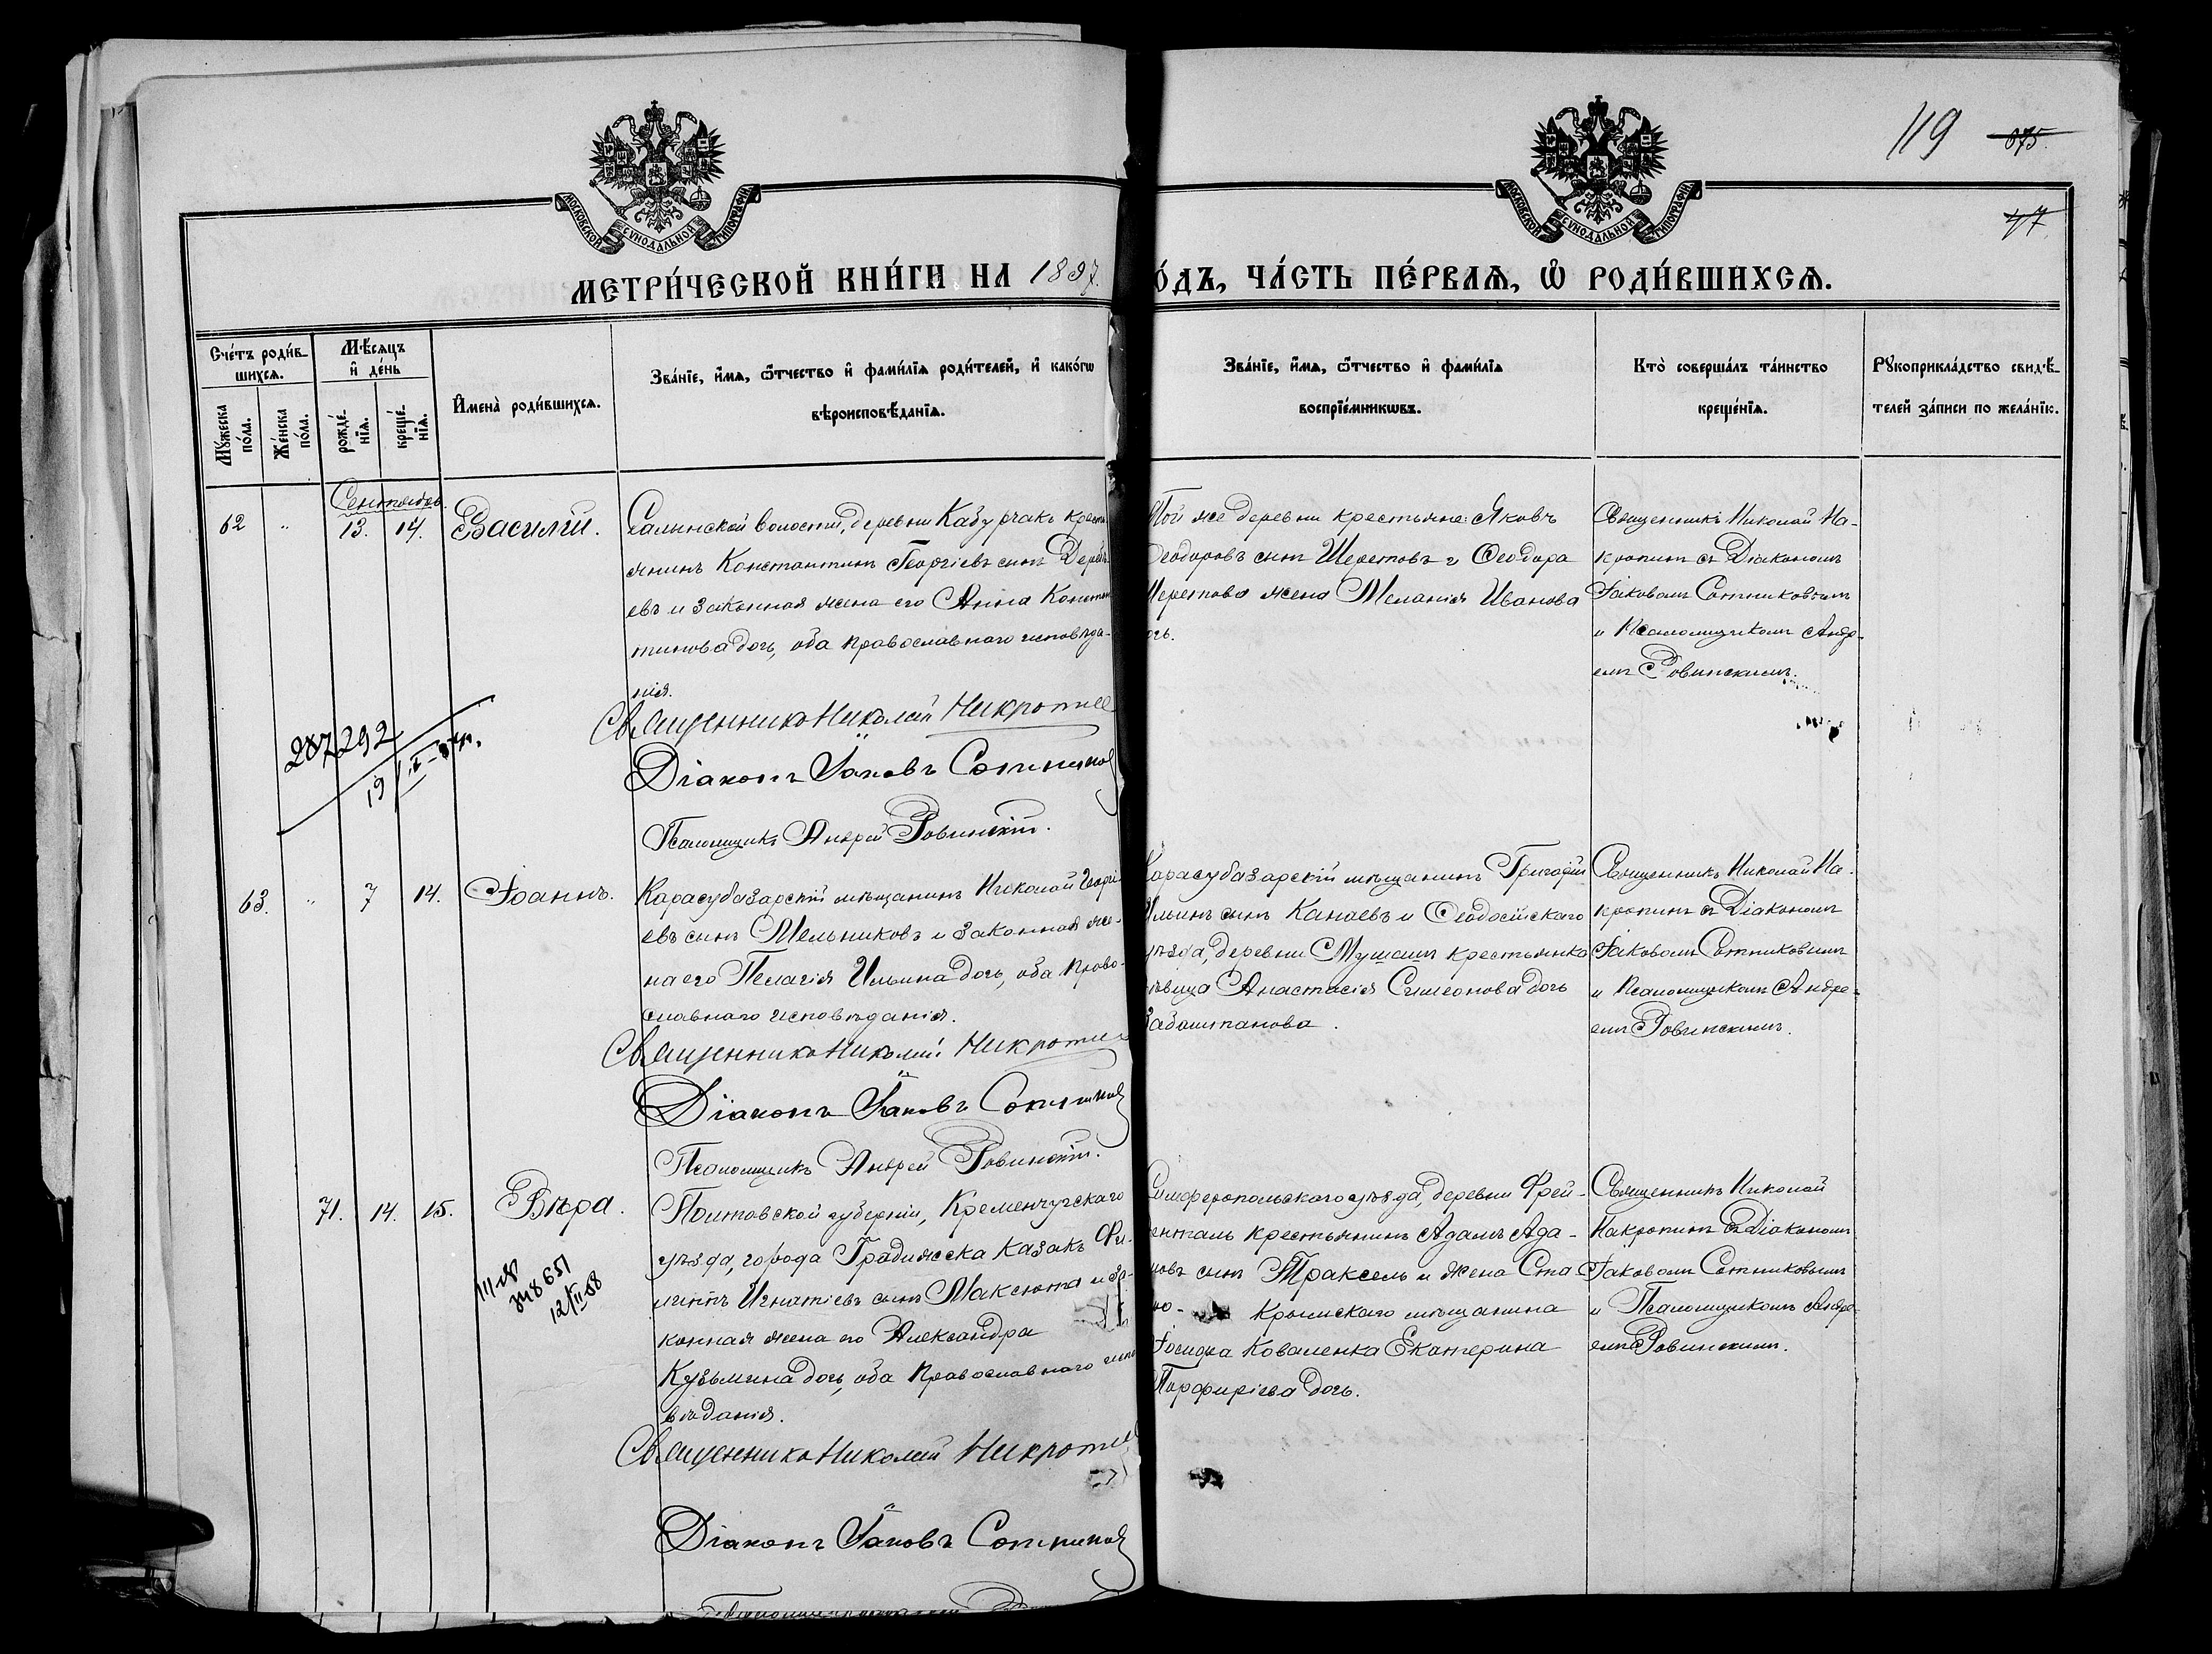 119 675.
47
МОСКОВСКОЙ СУНОДАЛЬНОЙ ТИПОГРАФИИ
МОСКОВСКОЙ СУНОДАЛЬНОЙ ТИПОГРАФИИ
МЕТРИ́ЧЕСКОЙ КНИ́ГИ НА 1897.
О́ДЪ, ЧА́СТЬ ПЕ́РВАѦ, Ѡ҆ РОДИ́ВШИХСѦ.
Сче́тъ роди́в-
шихсѧ.
Мѣ́сѧцъ
и҆ де́нь
Мꙋ́жеска
по́ла.
Же́нска
по́ла.
рожде́-
нїѧ.
креще́-
нїѧ.
И҆мена̀ роди́вшихсѧ.
Зва́нїе, и҆́мѧ, ѻ҆́тчество и҆ фами́лїѧ роди́телей, и҆ како́гѡ
вѣроисповѣ́данїѧ.
Зва́нїе, и҆́мѧ, ѻ҆́тчество и҆ фами́лїѧ
воспрїе́мникѡвъ.
Кто̀ соверша́лъ та́инство
креще́нїѧ.
Рꙋкоприкла́дство свидѣ́-
телей за́писи по жела́нїю.
Сентябрь
62 " 13. 14. Василій.
Салинской волости, деревни Кабурчакъ крест
янинъ Константинъ Георгіевъ сынъ
евъ и законная жена его Анна Констан
тинова дочь, оба православнаго исповѣда-
нія.
Священникъ Николай
Діаконъ Іаковъ Сотников
Псаломщикъ Андрей Ровинскій.
Той же деревни крестьяне: Яковъ
Ѳеодоровъ сынъ Шереметовъ и Ѳеодора
Шереметова жена Меланія Иванова
очь.
Священникъ Николай На-
кропинъ съ Діакономъ
Іаковомъ Сотниковымъ
и Псаломщикомъ Андре-
емъ Ровинскимъ.
287 292
19
63. " 7 14. Іоаннъ.
Карасубазарскій мѣщанинъ Николай Георгі
евъ сынъ Мельниковъ и законная же-
на его Пелагія Ильина дочь, оба право-
славнаго исповѣданія.
Священникъ Николай
Діаконъ Іаковъ Сотников
Псаломщикъ Андрей Ровинскій.
Карасубазарскій мѣщанинъ Григорій
Ильинъ сынъ Канаевъ и Ѳеодосійскаго
уѣзда, деревни Мушашъ крестьянка
дѣвица Анастасія Симеонова дочь
Священникъ Николай На-
кропинъ съ Діакономъ
Іаковомъ Сотниковымъ
и Псаломщикомъ Андре-
емъ Ровинскимъ.
71. 14. 15. Вѣра.
Полтавской губерніи, Кременчугскаго
уѣзда, города Градижска казакъ Фи-
липпъ Игнатіевъ сынъ Максюта и за-
конная жена его Александра
Кузьмина дочь, оба православнаго испо
вѣданія.
Священникъ Николай
Діаконъ Іаковъ Сотников
Симферопольскаго уѣзда, деревни Фрей-
енталь крестьянинъ Адамъ Ада-
мовъ сынъ Траксель и жена Ста
ро- Крымскаго мѣщанина
Коваленка Екатерина
Порфиріева дочь.
Священникъ Николай
Накропинъ съ Діакономъ
Іаковомъ Сотниковымъ
и Псаломщикомъ Андре-
емъ Ровинскимъ.